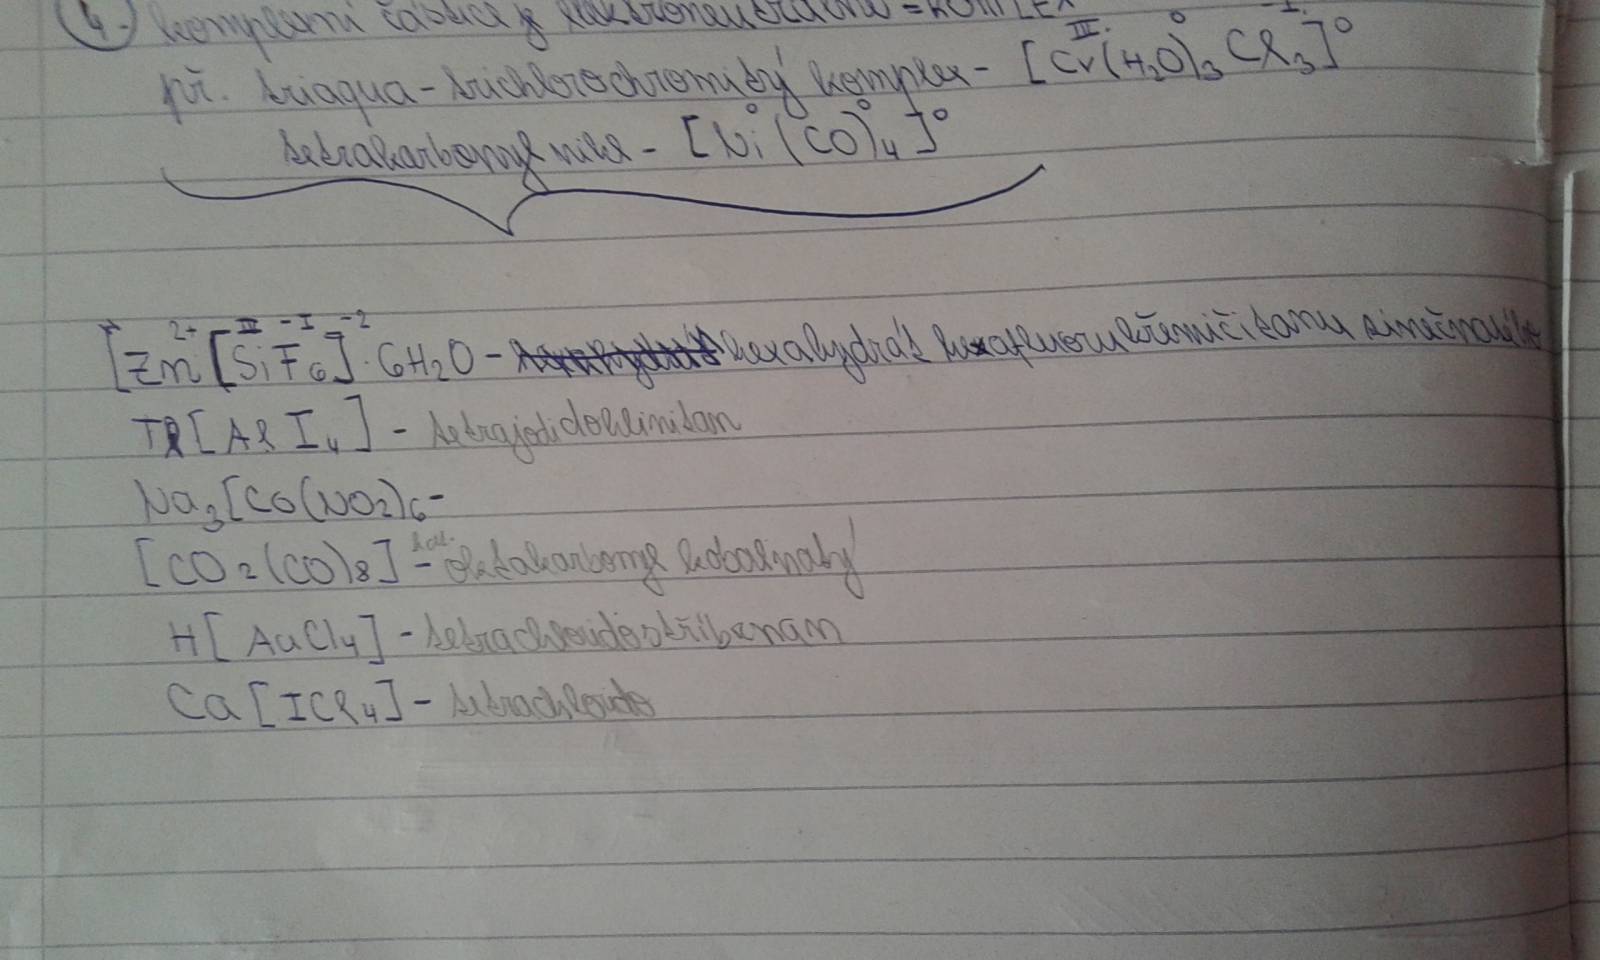 4. komplexní částice je elektroneutrální = KOMPLEX
př. triaqua-trichlorochromitý komplex - [Cr^III.(H₂O)₃^0 Cl₃^-I.]⁰
tetrakarbonyl nikl - [Ni^0(CO)₄^0]⁰
[Zn^2+[Si^IIF₆^-I]^-2 · 6H₂O - hexahydrát hexafluorokřemičitanu zinečnatého
Tl[AlI₄] - tetrajodidohlinitan
Na₃[Co(NO₂)₆-
[CO₂(CO)₈] - oktakarbonyl kobaltnatý
H[AuCl₄] - tetrachloridostříbrnan
Ca[ICl₄] - tetrachlorido